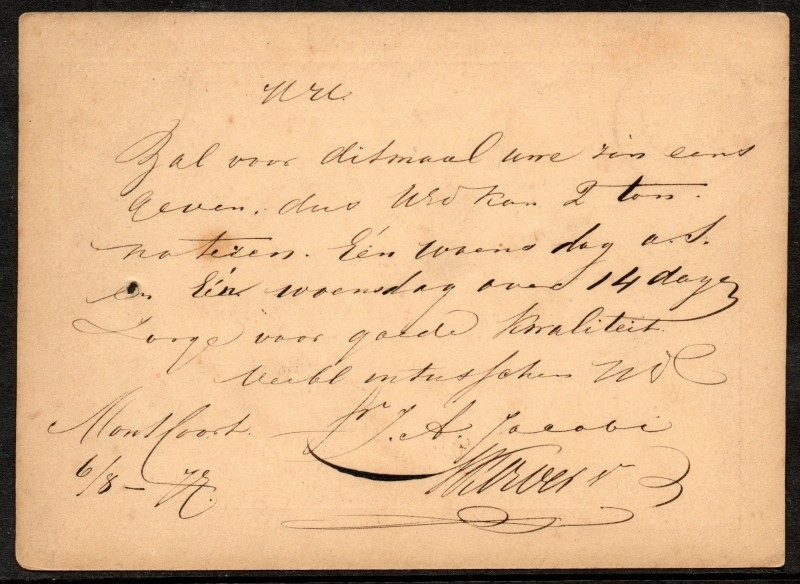 Zal voor ditmaal uwe zin eens
geven, dus UEd kan 2 ton
noteren. Eén woensdag a.s.
en Eén woensdag over 14 dagen
Zorge voor goede kwaliteit.
Verbl intusschen
J. A. Jacobi
Montfoort.
6/8 –